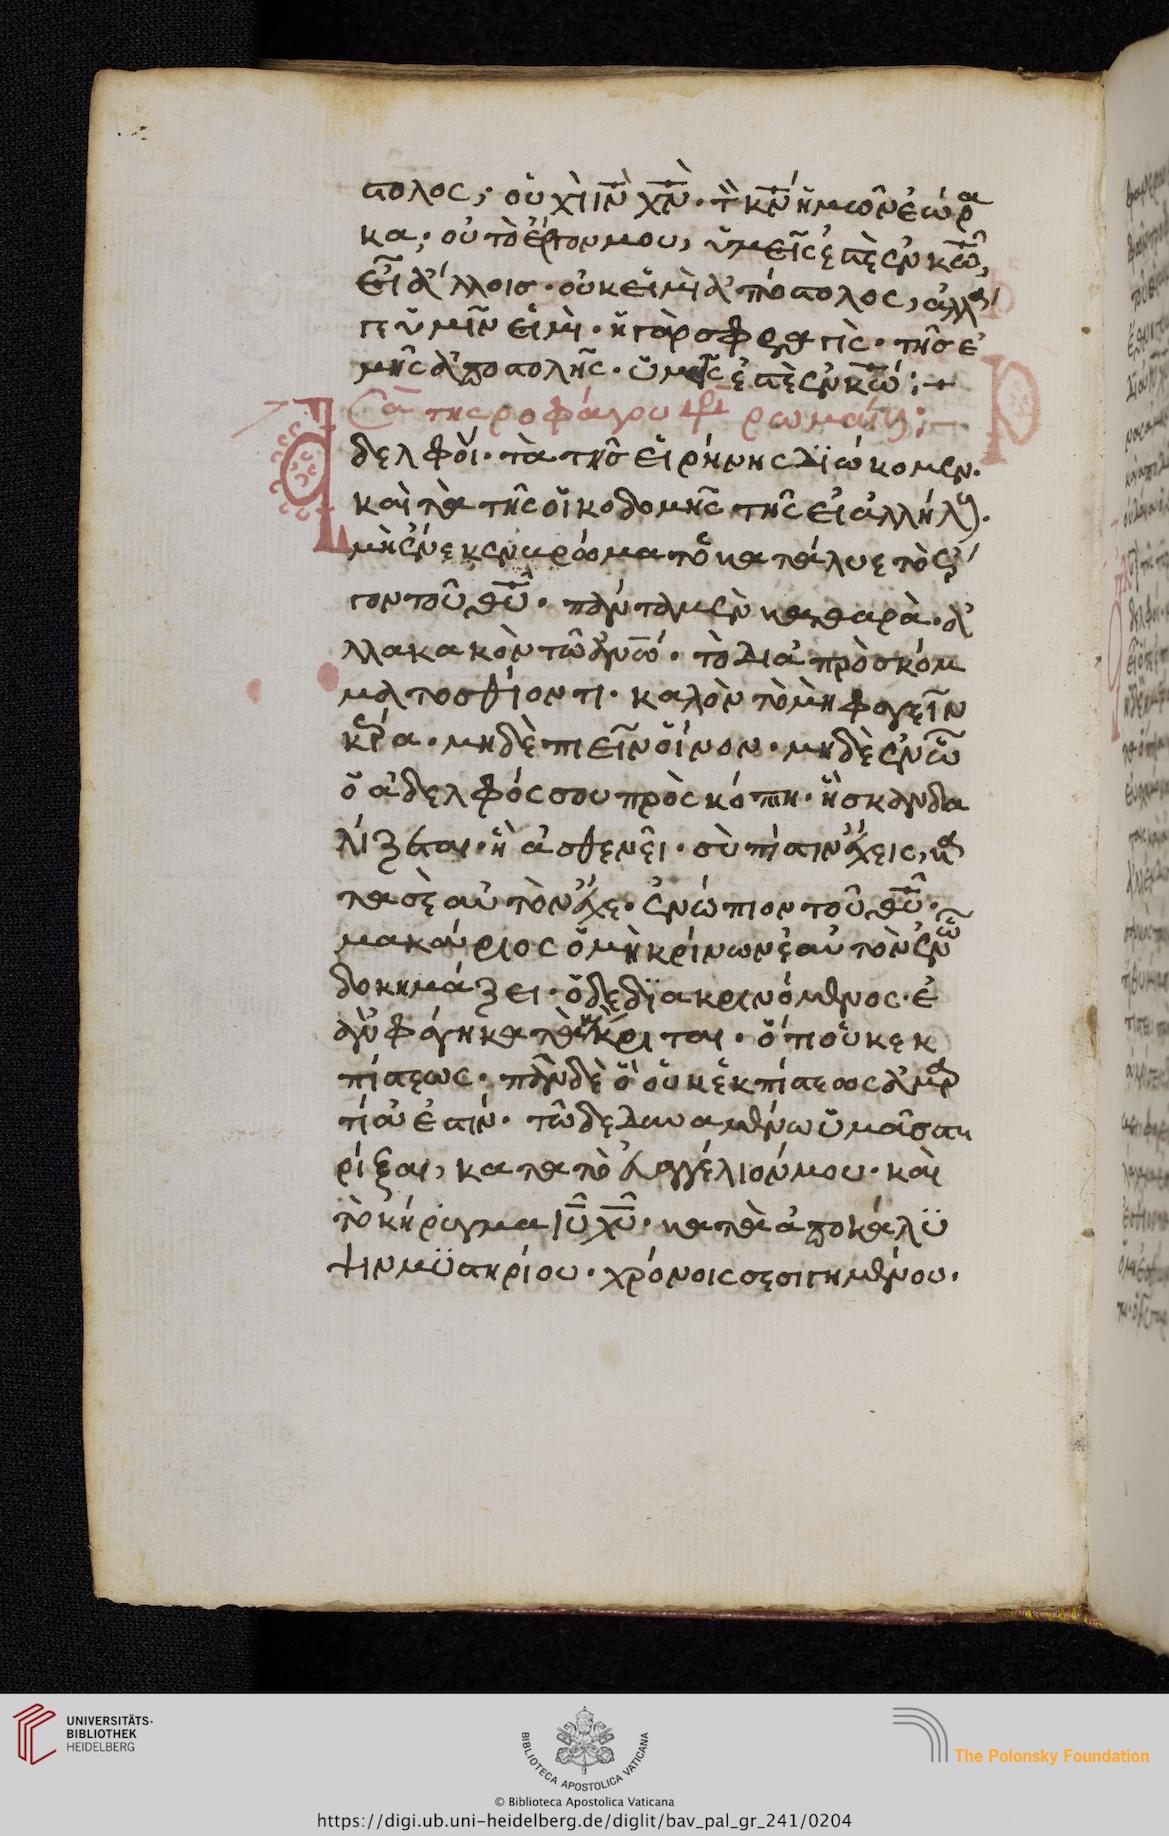 στολος; οὐχὶ ιν̅ χν̅· τὸν κν̅ ἡμῶν ἑώρα
κα; οὐ τὸ ἔργον μου, ὑμεῖς ἐστὲ ἐν κω̅,
εἰ ἄλλοισ· οὐκ εἰμὶ ἀπόστολος, ἀλλά
γε ὑμῖν εἰμὶ· ἡ γὰρ σφραγὶς· τῆσ ἐ
μῆς ἀποστολῆς· ὑμεῖς ἐστὲ ἐν κω̅:+
Σα τῆς τυροφάγου πρ ρωμαίους:
δελφοὶ· τὰ τῆσ εἰρήνης διώκομεν·
καὶ τὰ τῆς οἰκοδομῆς τῆς εἰ αλλήλους·
μὴ ἕνεκεν βρώματος κατάλυε τὸ ἔρ
γον τοῦ θυ̅· πάντα μὲν καθαρὰ· ἀ
λλα κακὸν τῶ ἀνω̅· τὸ διὰ προσκόμ
ματοσ ἐσθίοντι· καλὸν τὸ μὴ φαγεῖν
κρέα· μηδὲ πιεῖν οἶνον· μηδὲ ἐν ὧ
ὁ ἀδελφός σου προσκόπτη· ἢ σκανδα
λίζεται· ἢ ἀσθενεῖ· σὺ πίστιν ἔχεις, κα
τα σὲ αυτὸν ἔχε· ἐνώπιον τοῦ θυ̅·
μακάριος ὁ μὴ κρίνων ἑαυτὸν ἐν ὧ
δοκιμάζει· ὁ δε διακρινόμενος· ἐ
ὰν φάγη κατακέκριται· ὅτι οὐκ ἐκ
πίστεως· πᾶν δὲ ὃ οὐκ ἐκ πίστεως ἁμαρ
τία ἐστίν· τῶ δε δυναμένω ὑμᾶσ στη
ρίξαι, κατα τὸ εὐαγγέλιόν μου· καὶ
τὸ κήρυγμα ιυ̅ χυ̅· κατὰ ἀποκάλυ
ψιν μυστηρίου· χρόνοις σεσιγημένου·
UNIVERSITÄTS-
BIBLIOTHEK
HEIDELBERG
BIBLIOTECA APOSTOLICA VATICANA
The Polonsky Foundation
© Biblioteca Apostolica Vaticana
https://digi.ub.uni-heidelberg.de/diglit/bav_pal_gr_241/0204